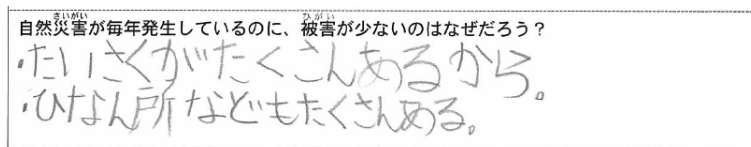 自然災害が毎年発生しているのに、被害が少ないのはなぜだろう？
・たいさくがたくさんあるから。
・ひなん所などもたくさんある。